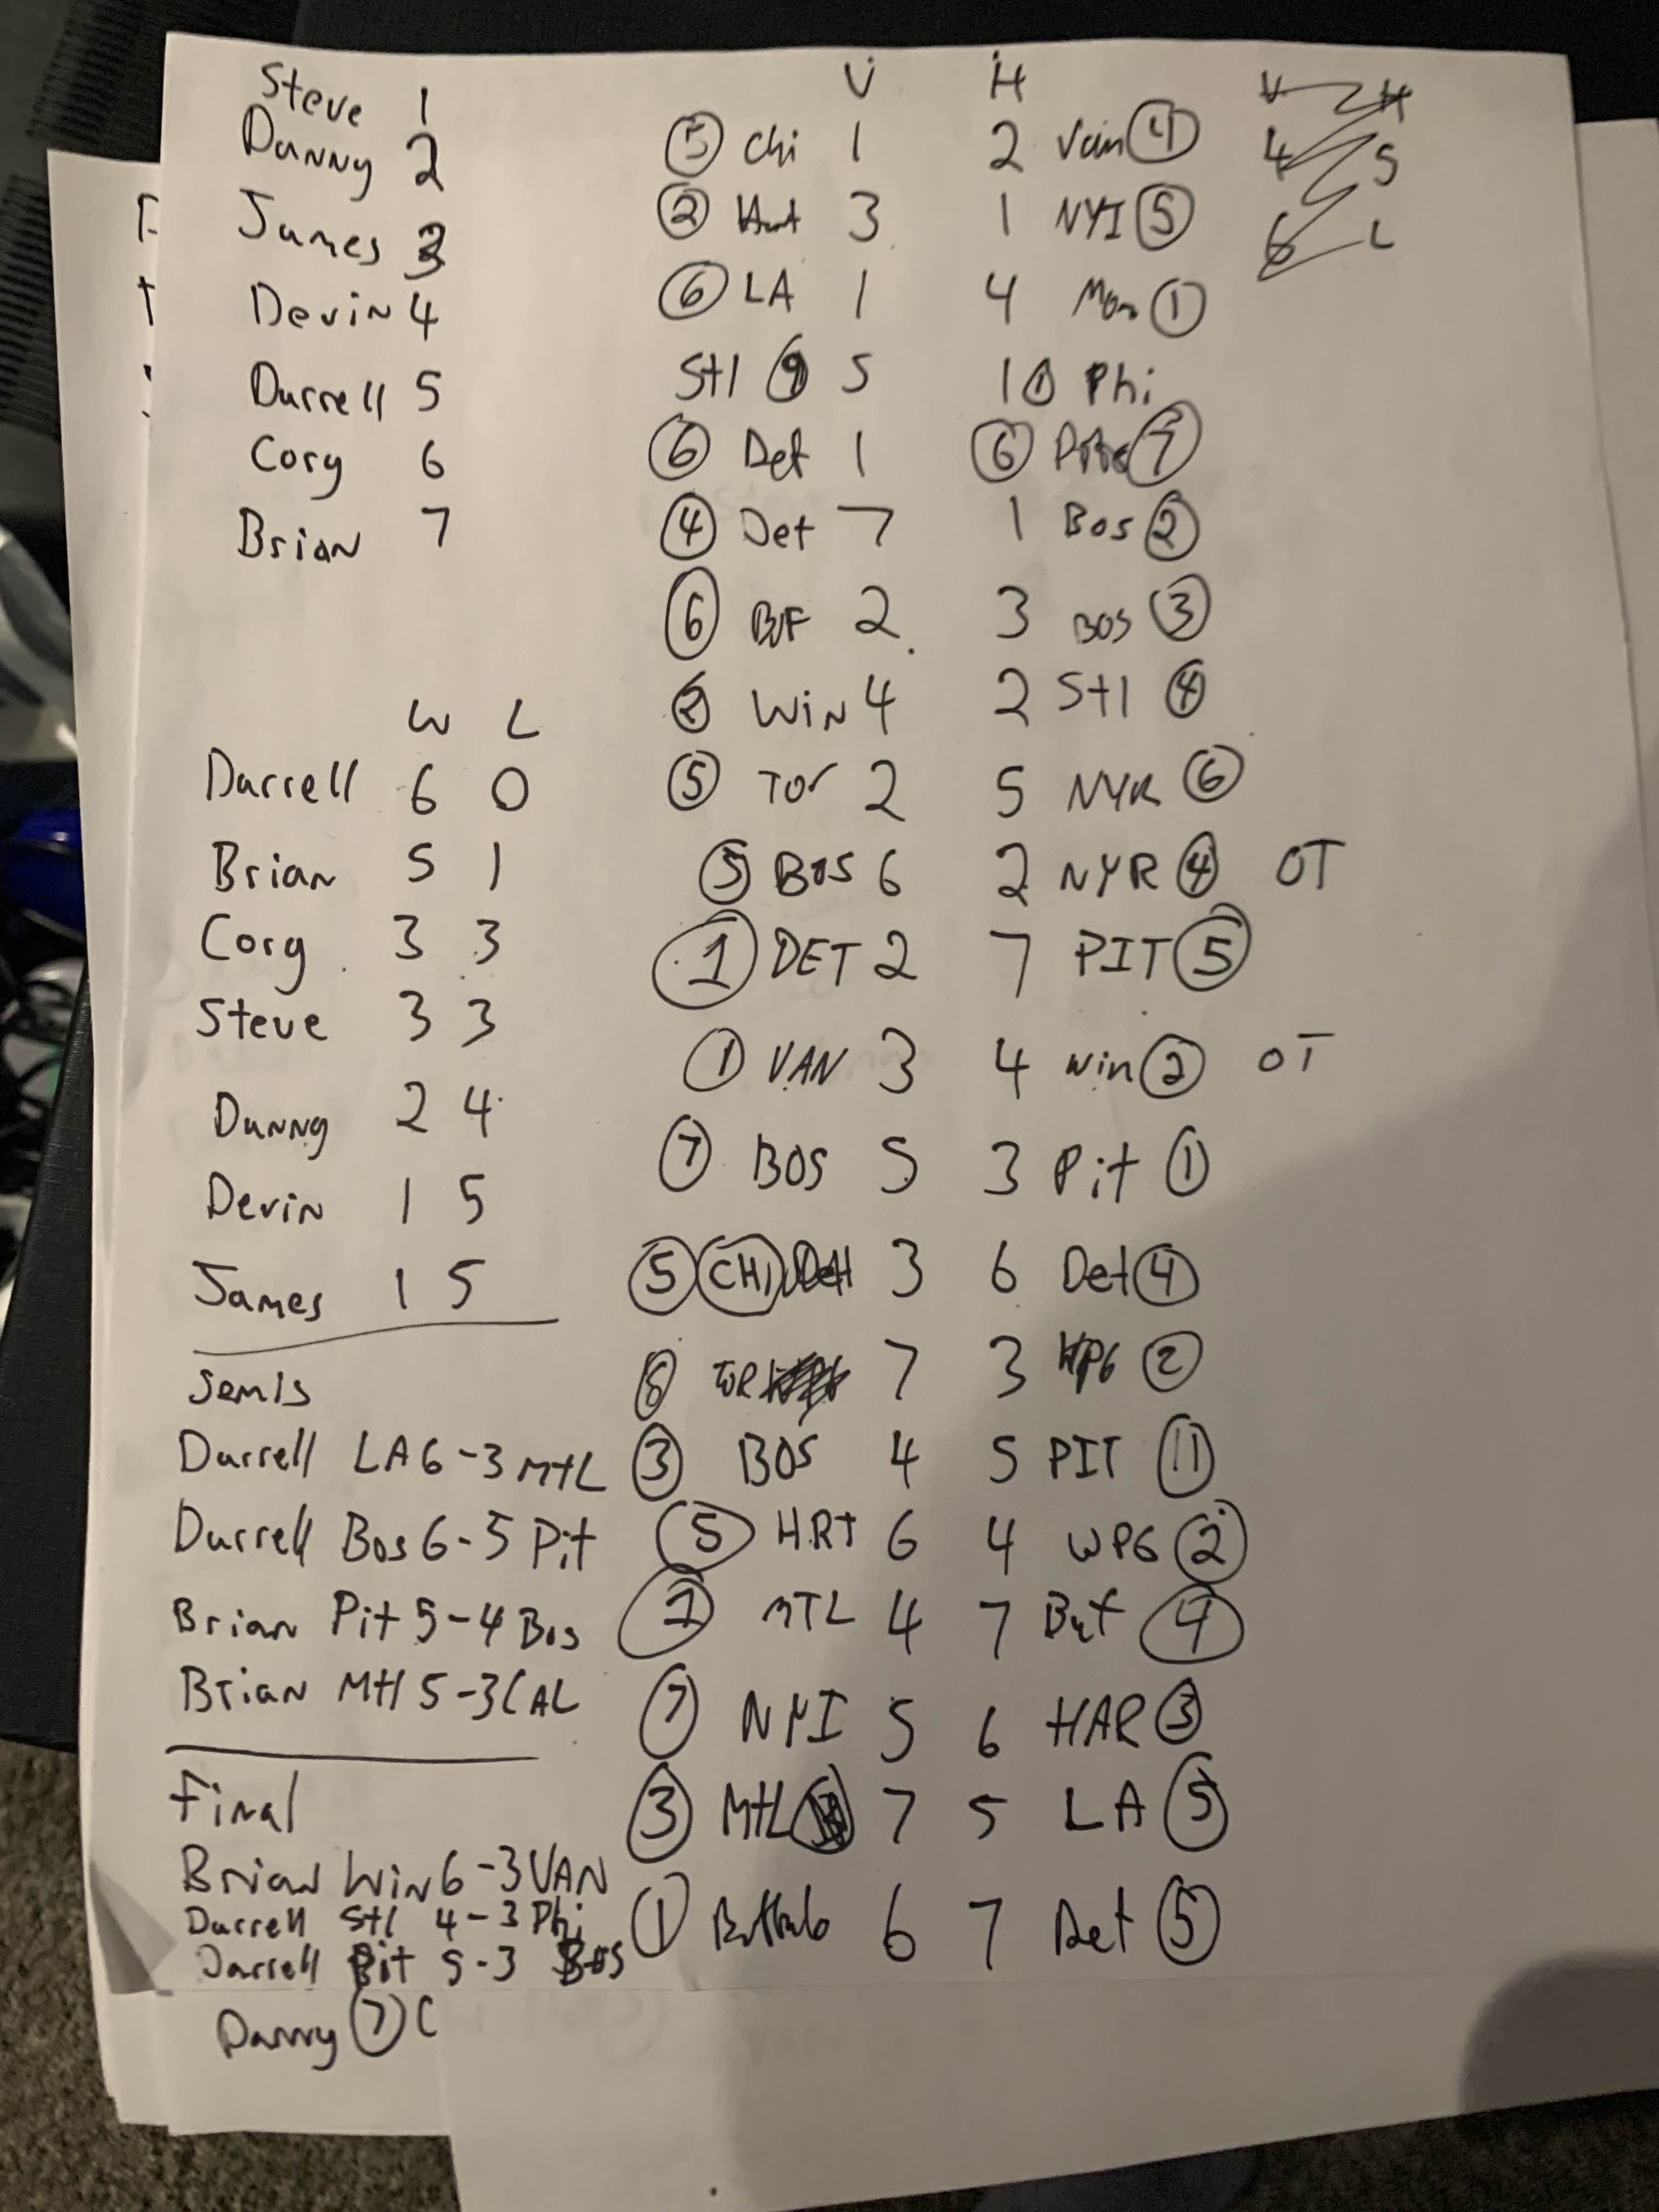 Steve 1
Danny 2
James 3
Devin 4
Darrell 5
Cory 6
Brian 7
W L
Darrell 6 0
Brian 5 1
Cory 3 3
Steve 3 3
Danny 2 4
Devin 1 5
James 1 5
Semis
Darrell LA 6-3 MTL
Darrell Bos 6-5 Pit
Brian Pit 5-4 Bos
Brian Mtl 5-3 CAL
Final
Brian Win 6-3 VAN
Darrell Stl 4-3 Phi
Darrell Pit 5-3 Bos
Danny 7 C
V H
5 Chi 1 2 Van 4
2 3 1 NYI 5
6 LA 1 4 Mon 1
Stl 5 1 1 Phi
6 Det 1 6 7
4 Det 7 1 Bos 2
6 BUF 2 3 BOS 3
2 WiN 4 2 Stl 4
5 Tor 2 5 NYR 6
5 BOS 6 2 NYR 4 OT
1 DET 2 7 PIT 5
1 VAN 3 4 Win 2 OT
7 BOS 5 3 Pit 1
5 CHI 3 6 Det 4
6 TOR 7 3 WPG 2
3 BOS 4 5 PIT 1
5 HRT 6 4 WPG 2
7 MTL 4 7 Buf 4
7 NYI 5 6 HAR 3
3 MTL 7 5 LA 5
1 Buffalo 6 7 Det 5
V H
4 5
6 L